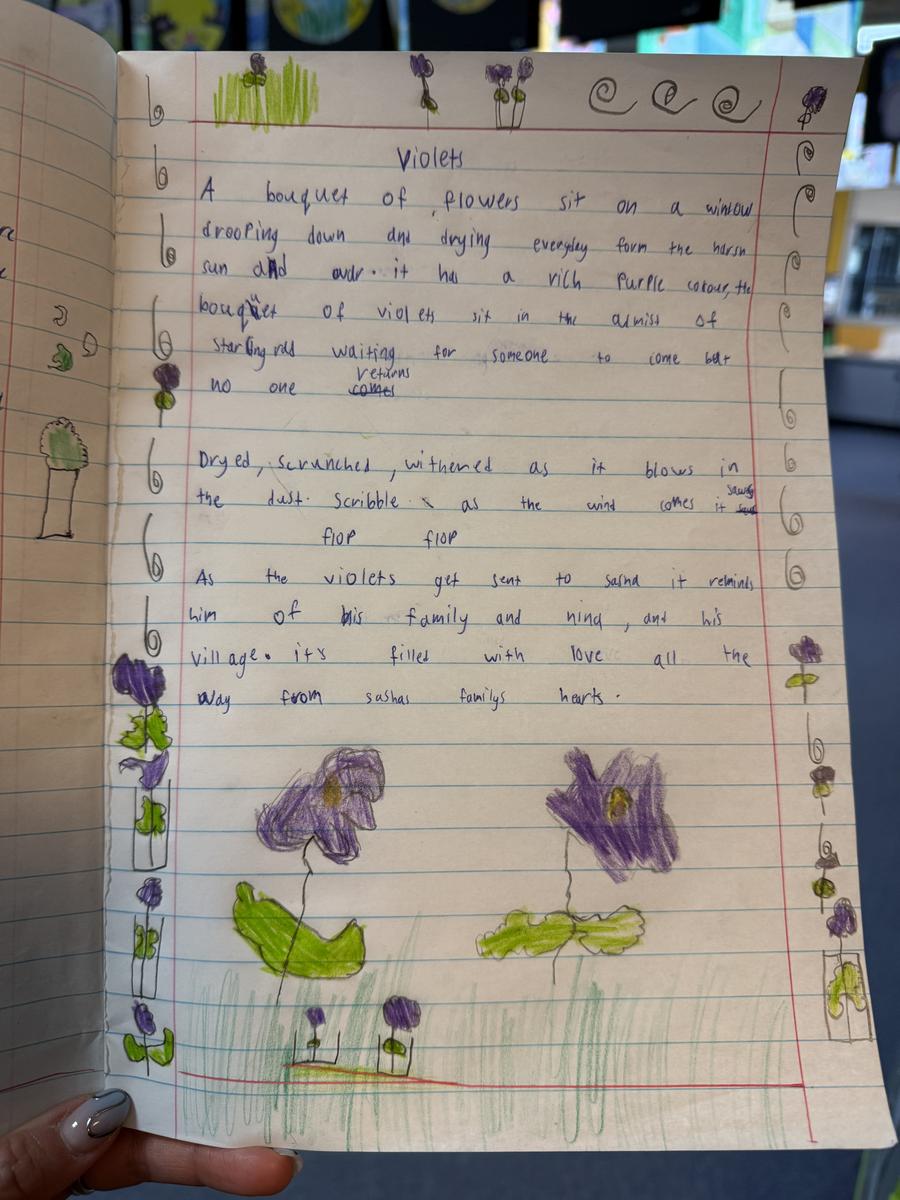 Violets
A bouquet of flowers sit on a window
drooping down and drying everyday form the harsh
sun and it has a rich purple colour, the
bouquet of violets sit in the of
waiting for someone to come but
no one comes returns
Dryed, scrunched, withered as it blows in
the dust. Scribble as the wind comes it
flop flop
As the violets get sent to sasha it reminds
him of his family and nina, and his
village. its filled with love all the
way from sashas familys hearts.